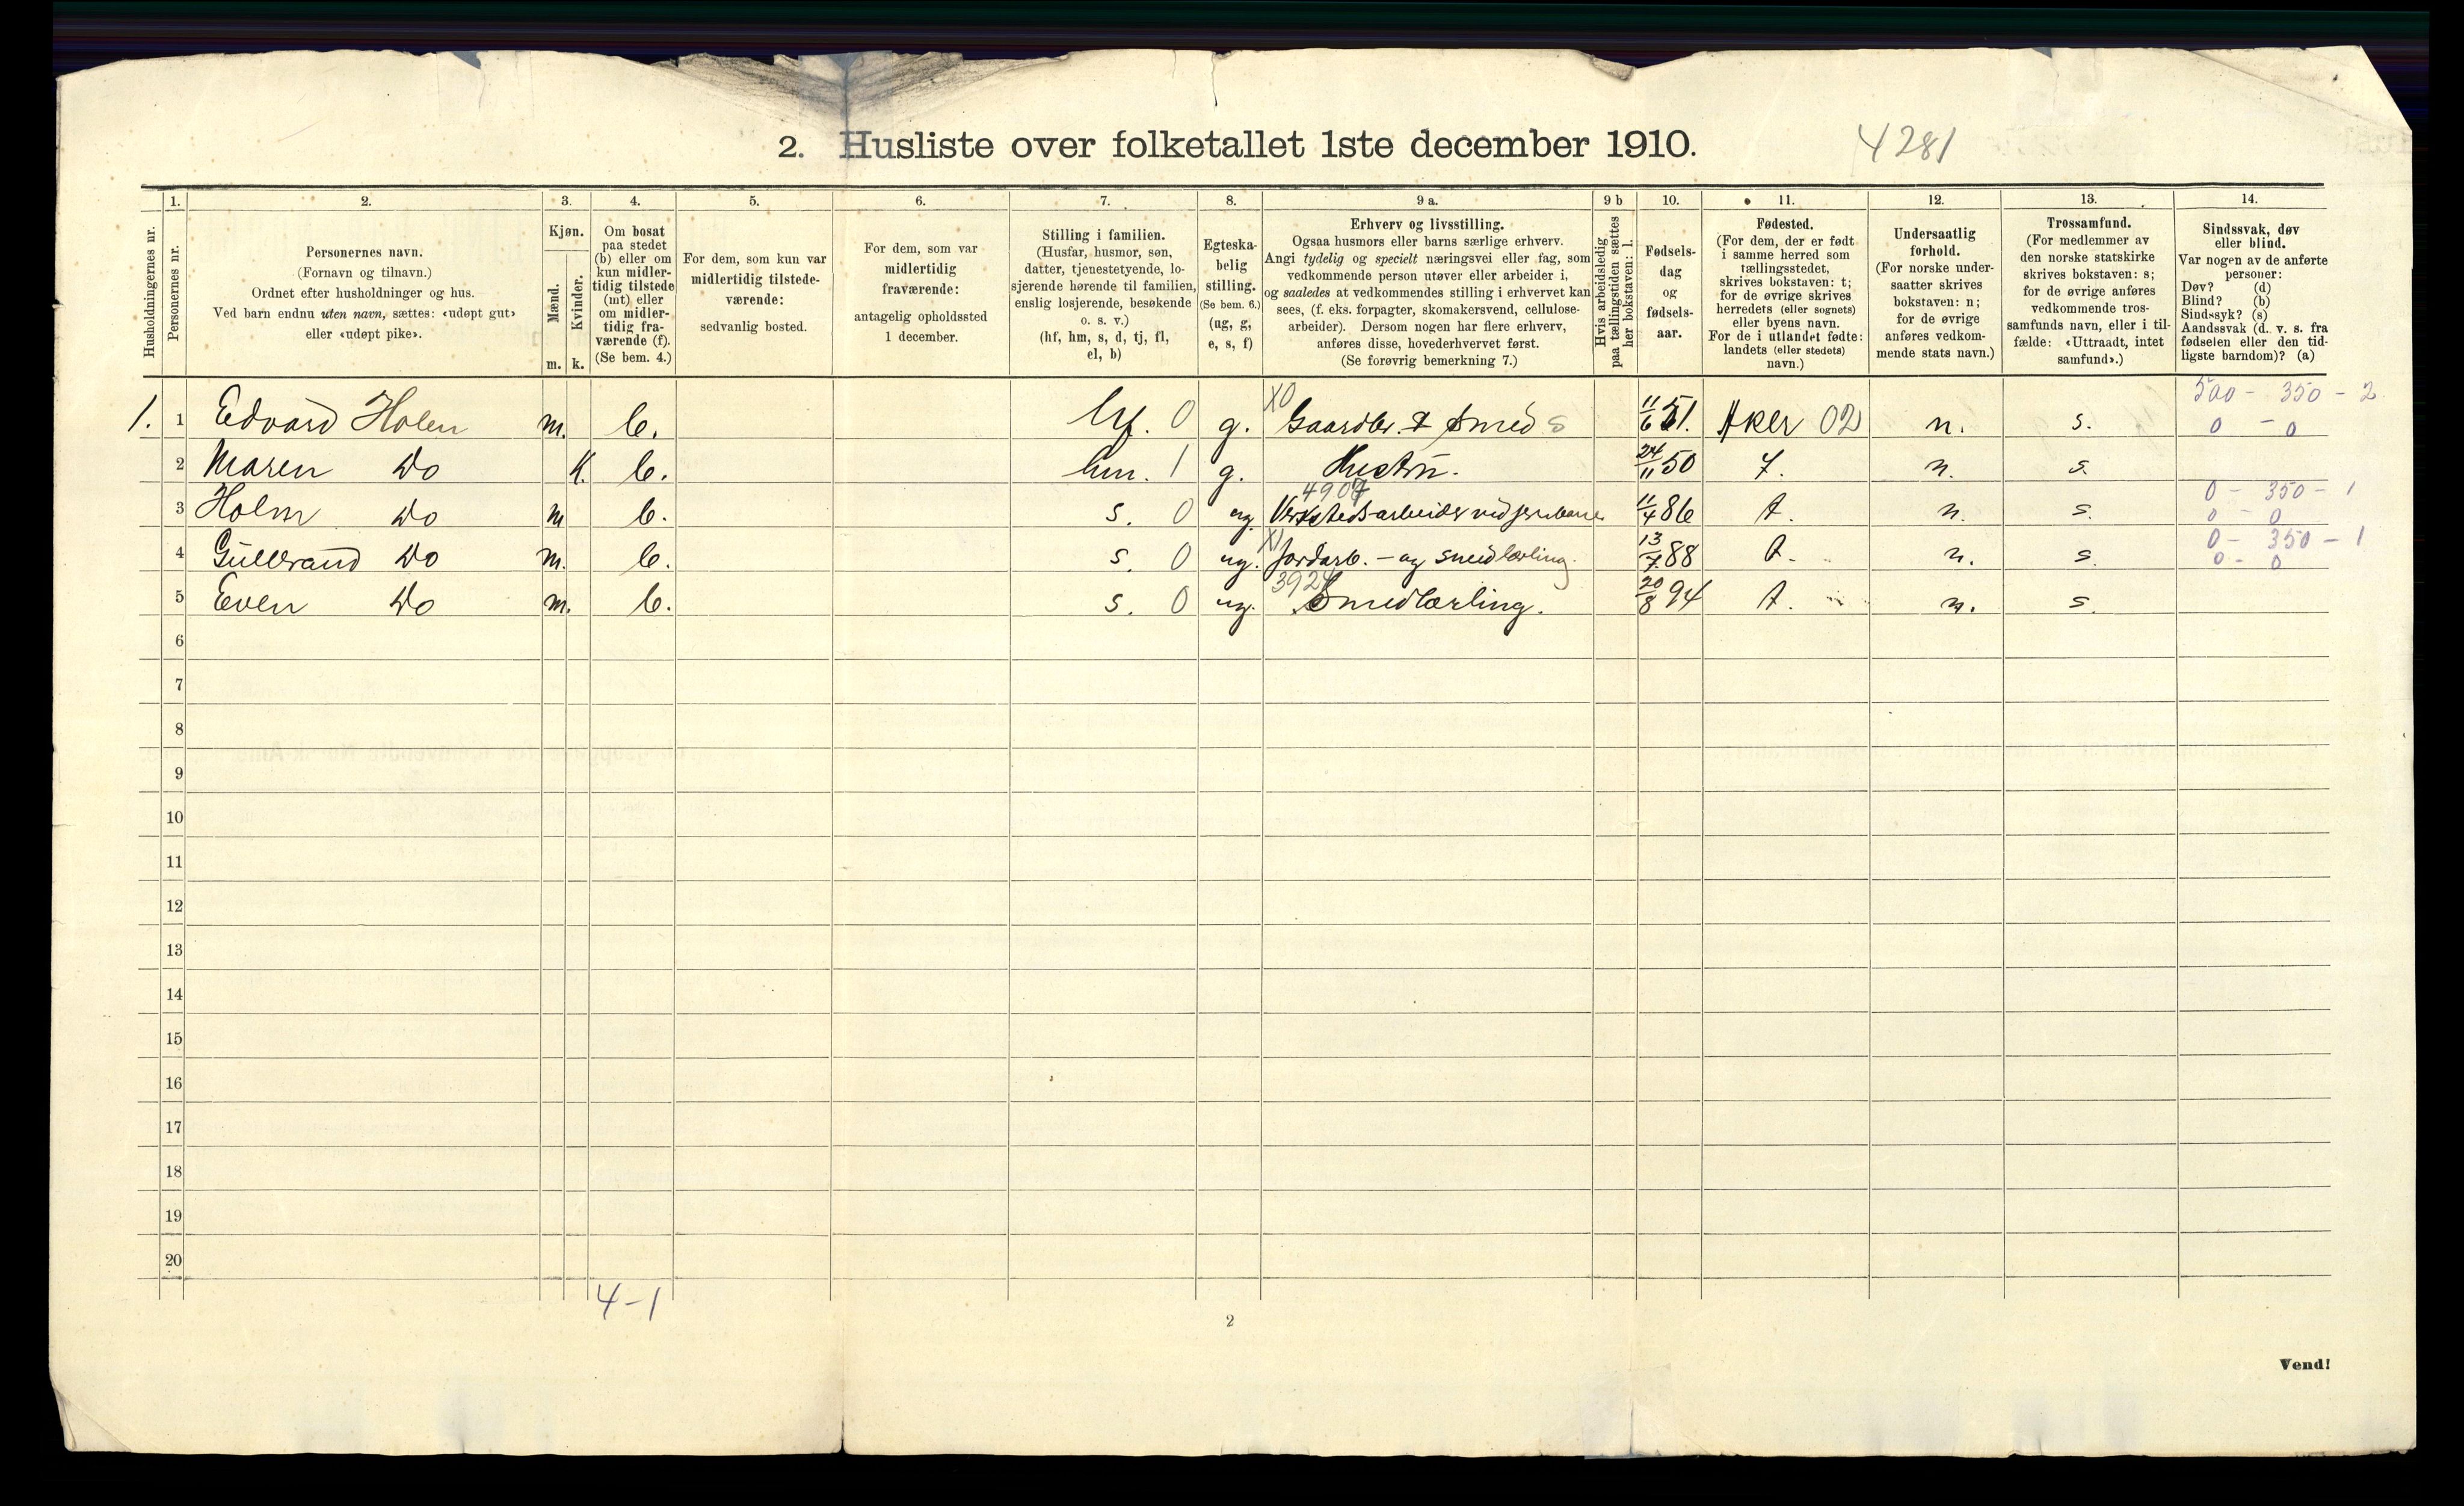 2. Husliste over folketallet 1ste december 1910.
4281
1. 2. 3. 4. 5. 6. 7. 8. 9 a. 9 b 10. 11. 12. 13. 14.
Husholdningernes nr.
Personernes nr.
Personernes navn.
(Fornavn og tilnavn.)
Ordnet efter husholdninger og hus.
Ved barn endnu uten navn, sættes: «udøpt gut»
eller «udøpt pike».
Kjøn.
Mænd.
Kvinder.
m. k.
Om bosat
paa stedet
(b) eller om
kun midler-
tidig tilstede
(mt) eller
om midler-
tidig fra-
værende (f).
(Se bem. 4.)
For dem, som kun var
midlertidig tilstede-
værende:
sedvanlig bosted.
For dem, som var
midlertidig
fraværende:
antagelig opholdssted
1 december.
Stilling i familien.
(Husfar, husmor, søn,
datter, tjenestetyende, lo-
sjerende hørende til familien,
enslig losjerende, besøkende
o. s. v.)
(hf, hm, s, d, tj, fl,
el, b)
Egteska-
belig
stilling.
(Se bem. 6.)
(ug, g,
e, s, f)
Erhverv og livsstilling.
Ogsaa husmors eller barns særlige erhverv.
Angi tydelig og specielt næringsvei eller fag, som
vedkommende person utøver eller arbeider i,
og saaledes at vedkommendes stilling i erhvervet kan
sees, (f. eks. forpagter, skomakersvend, cellulose-
arbeider). Dersom nogen har flere erhverv,
anføres disse, hovederhvervet først.
(Se forøvrig bemerkning 7.)
Hvis arbeidsledig
paa tællingstiden sættes
her bokstaven: l.
Fødsels-
dag
og
fødsels-
aar.
Fødested.
(For dem, der er født
i samme herred som
tællingsstedet,
skrives bokstaven: t;
for de øvrige skrives
herredets (eller sognets)
eller byens navn.
For de i utlandet fødte:
landets (eller stedets)
navn.)
Undersaatlig
forhold.
(For norske under-
saatter skrives
bokstaven: n;
for de øvrige
anføres vedkom-
mende stats navn.)
Trossamfund.
(For medlemmer av
den norske statskirke
skrives bokstaven: s;
for de øvrige anføres
vedkommende tros-
samfunds navn, eller i til-
fælde: «Uttraadt, intet
samfund».)
Sindssvak, døv
eller blind.
Var nogen av de anførte
personer:
Døv? (d)
Blind? (b)
Sindssyk? (s)
Aandssvak (d. v. s. fra
fødselen eller den tid-
ligste barndom)? (a)
X0 500 - 350 - 2
1. 1 Edvard Holen m. b. hf. 0 g. Gaardbr. & Smed s 11/6 51. Aker 02 n. s. 0 - 0
2 Maren Do K. b. hm. 1 g. Hustru. 24/11 50 t. n. s.
4907 0 - 350 - 1
3 Holm Do m b. s. 0 ug. Verkstedsarbeider ved jernbane 11/4 86 t. n. s. 0 - 0
X1 0 - 350 - 1
4 Gulbrand Do m. b. s. 0 ug. Jordarb. - og smedlærling. 13/7 88 t. n. s. 0 - 0
3924
5 Even Do m. b. s. 0 ug. Smedlærling. 20/8 94 t. n. s.
6
7
8
9
10
11
12
13
14
15
16
17
18
19
20
4-1
2
Vend!